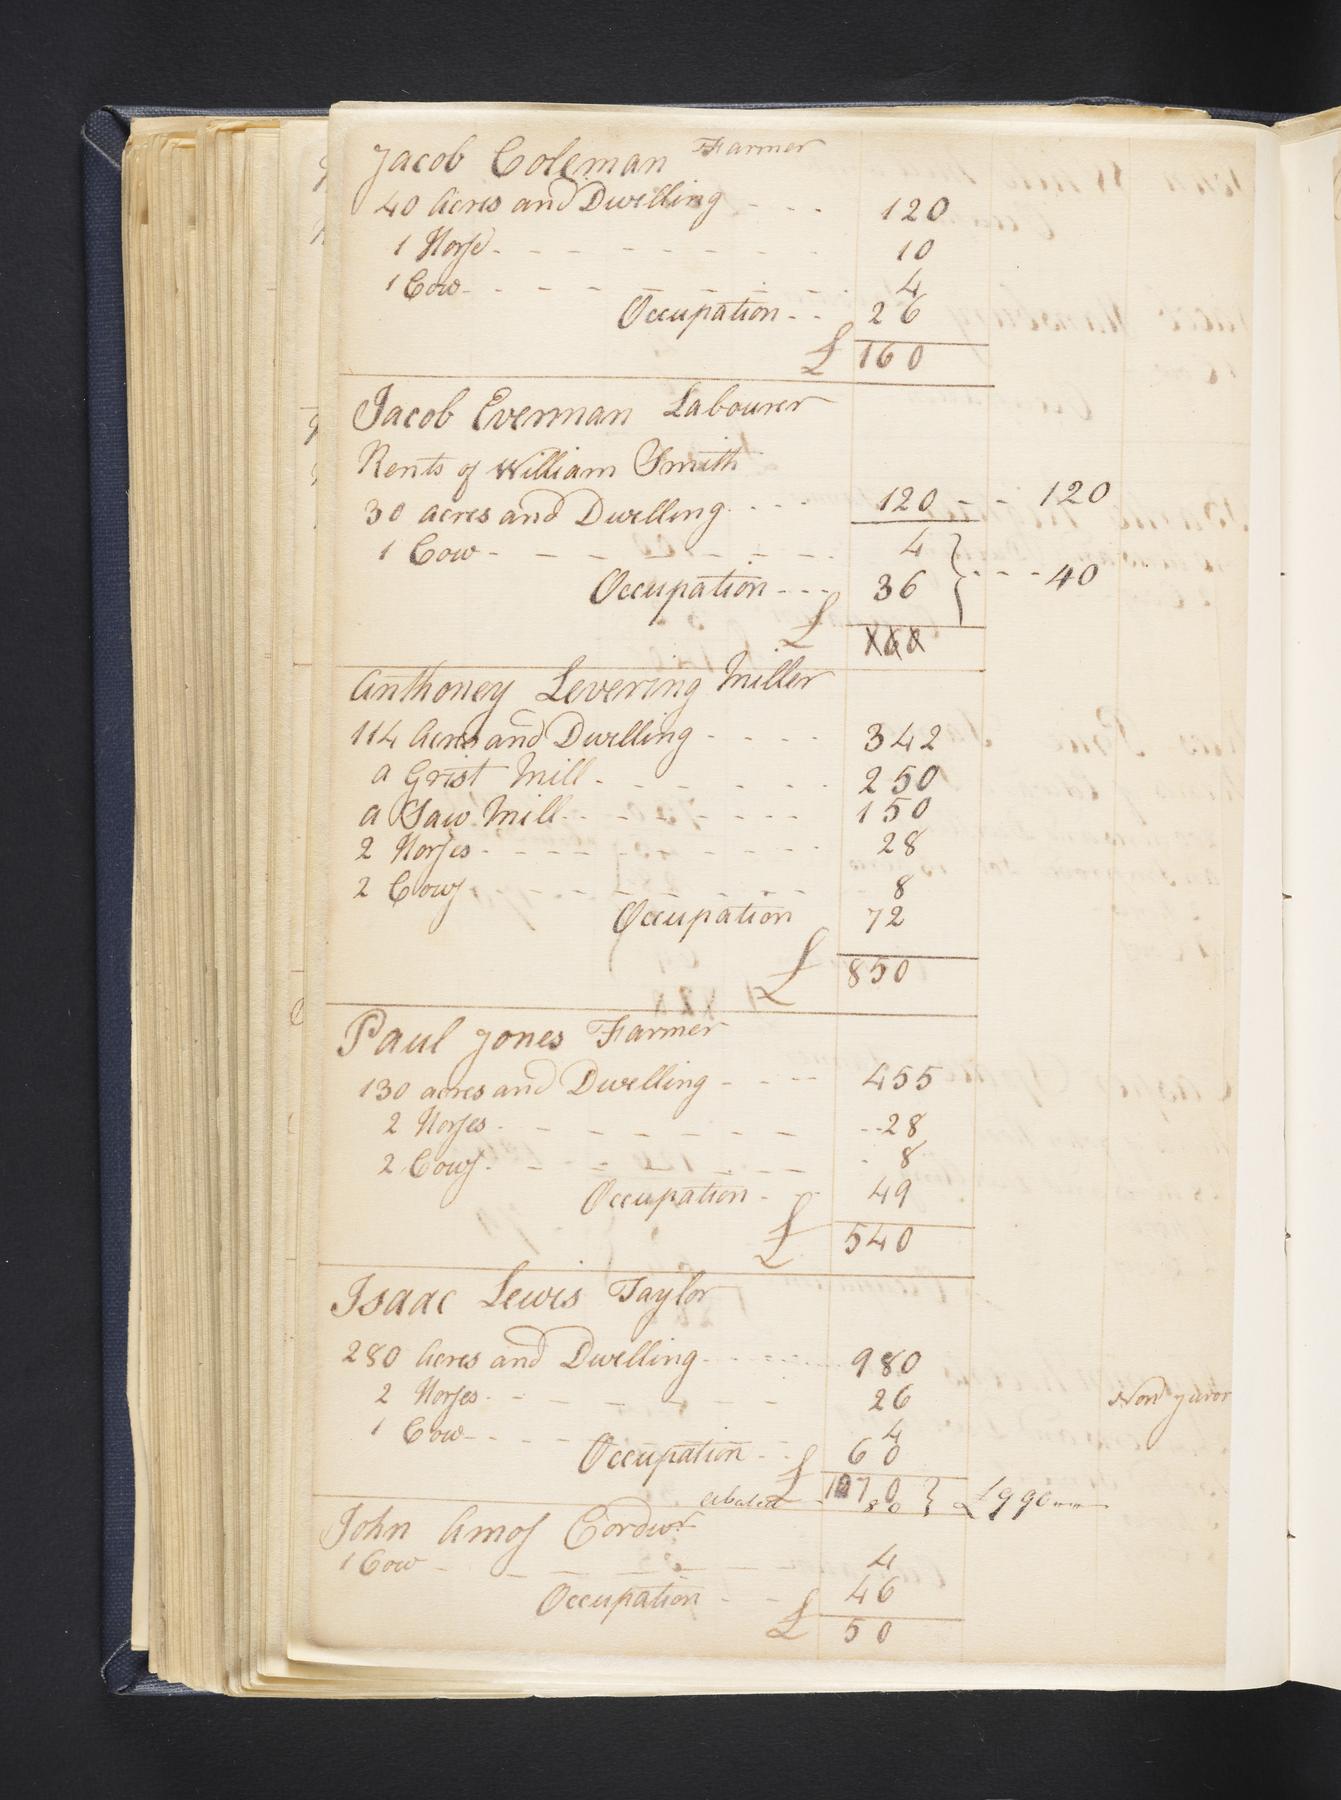 Jacob Coleman Farmer
40 Acres and Dwelling - - - 120
1 Horse - - - - - - - 10
1 Cow - - - - - - - 4
Occupation - - 26
£ 160
Jacob Everman Labourer
Rents of William Smith
30 acres and Dwelling - - - 120 - - 120
1 Cow - - - - - - - 4
Occupation - - - 36 } - - - 40
£ 160
Anthoney Levering Miller
114 Acres and Dwelling - - - - 342
a Grist Mill - - - - - - 250
a Saw Mill - - - - - - 150
2 Horses - - - - - - - - 28
2 Cows - - - - - - - 8
Occupation 72
£ 850
Paul Jones Farmer
130 acres and Dwelling - - - 455
2 Horses - - - - - - - 28
2 Cows - - - - - - - 8
Occupation - - 49
£ 540
Isaac Lewis Taylor
280 Acres and Dwelling - - - - 980
2 Horses - - - - - - 26
Non Juror
1 Cow - - - - - 4
Occupation - - 60
£ 1070
abated - 80 } £990
John Amos Cordwr
1 Cow - - - - - - 4
Occupation - - 46
£ 50